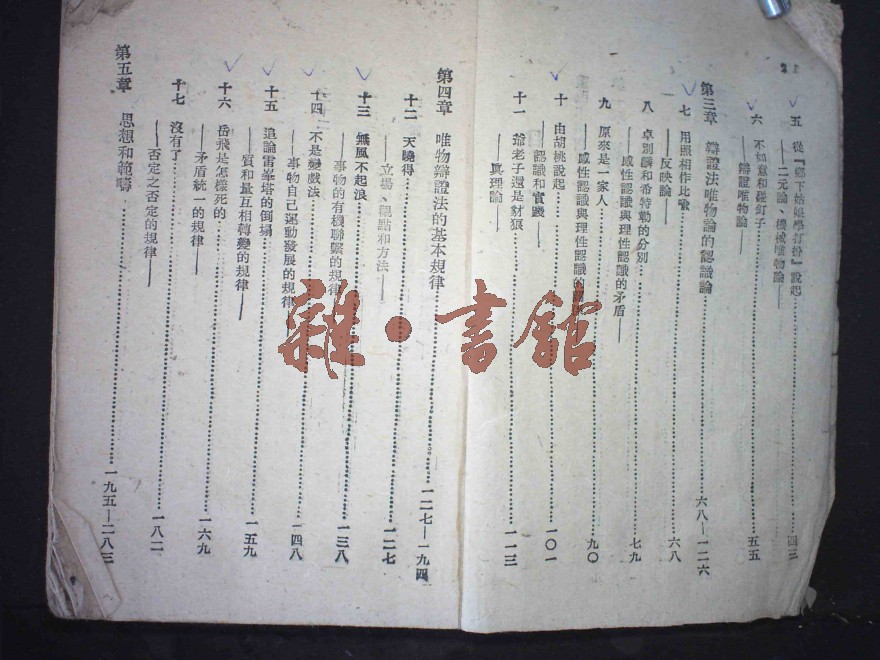 五 從『鄉下姑娘學打扮』說起……四三
——二元論、機械唯物論——
六 不如意和碰釘子……五五
——辯證唯物論——
第三章 辯證法唯物論的認識論……六八—一二六
七 用照相作比喻……六八
——反映論——
八 卓別麟和希特勒的分別……七九
——感性認識與理性認識的矛盾——
九 原來是一家人……九〇
——感性認識與理性認識的
十 由胡桃說起……一〇一
——認識和實踐——
十一 爺老子還是豺狼……一一三
——眞理論——
第四章 唯物辯證法的基本規律……一二七—一九四
十二 天曉得……一二七
——立場、觀點和方法——
十三 無風不起浪……一三八
——事物的有機聯繫的規律
十四 不是變戲法……一四八
——事物自己運動發展的規律——
十五 追論雷峯塔的倒塌……一五九
——質和量互相轉變的規律——
十六 岳飛是怎樣死的……一六九
——矛盾統一的規律——
十七 沒有了……一八二
——否定之否定的規律——
第五章 思想和範疇……一九五—二八三
雜·書館